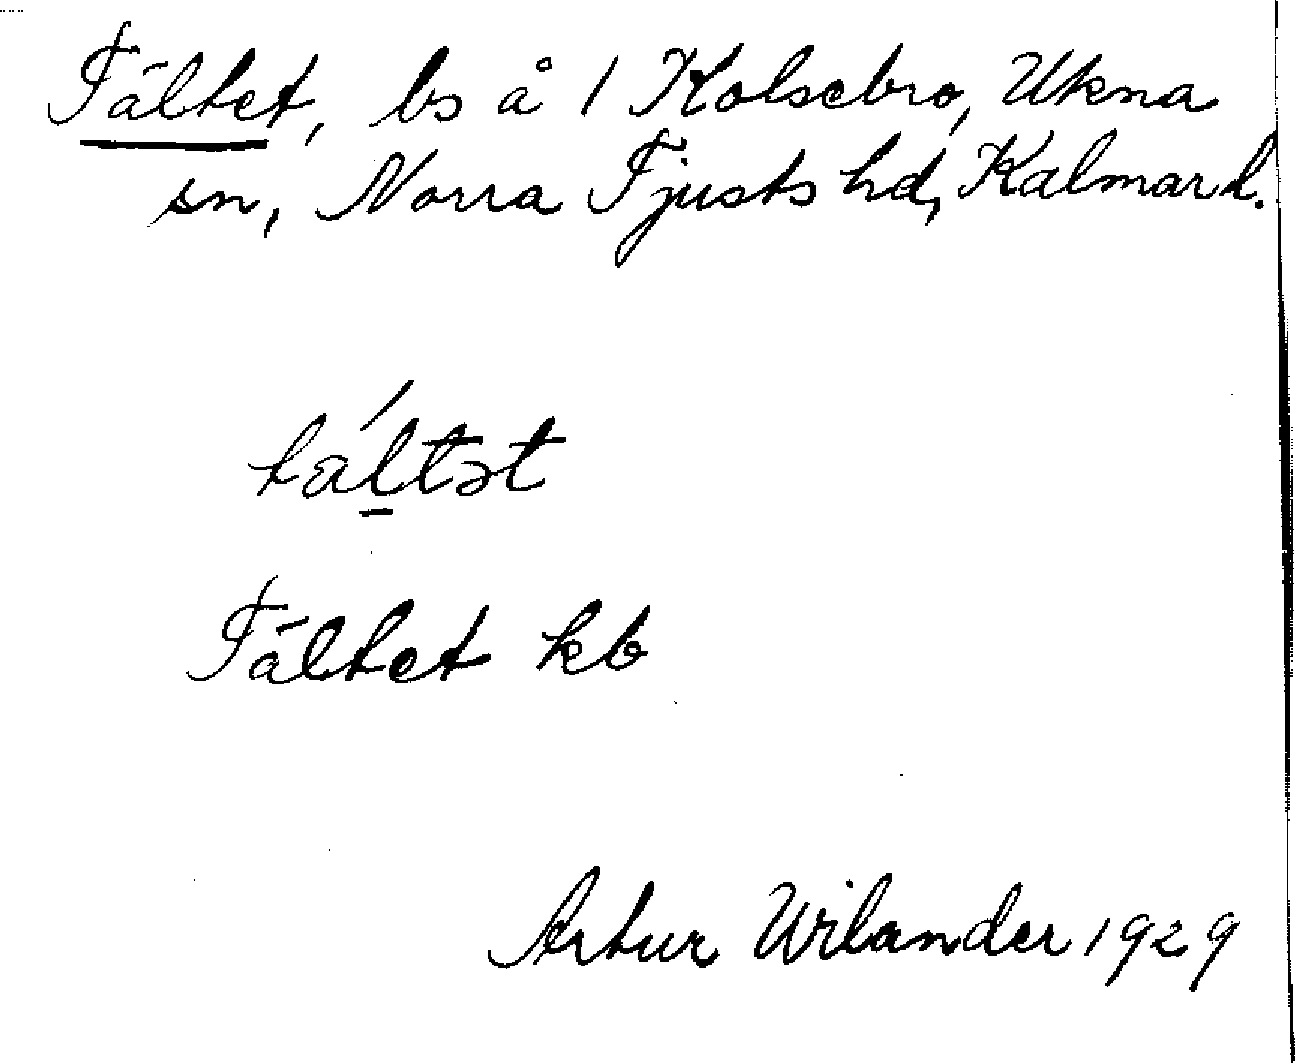 Tältet, bs å 1 Kolsebro, Ukna
sn, Norra Tjusts hd, Kalmar l.
tæ̀ltət
Tältet kb
Artur Wilander 1929